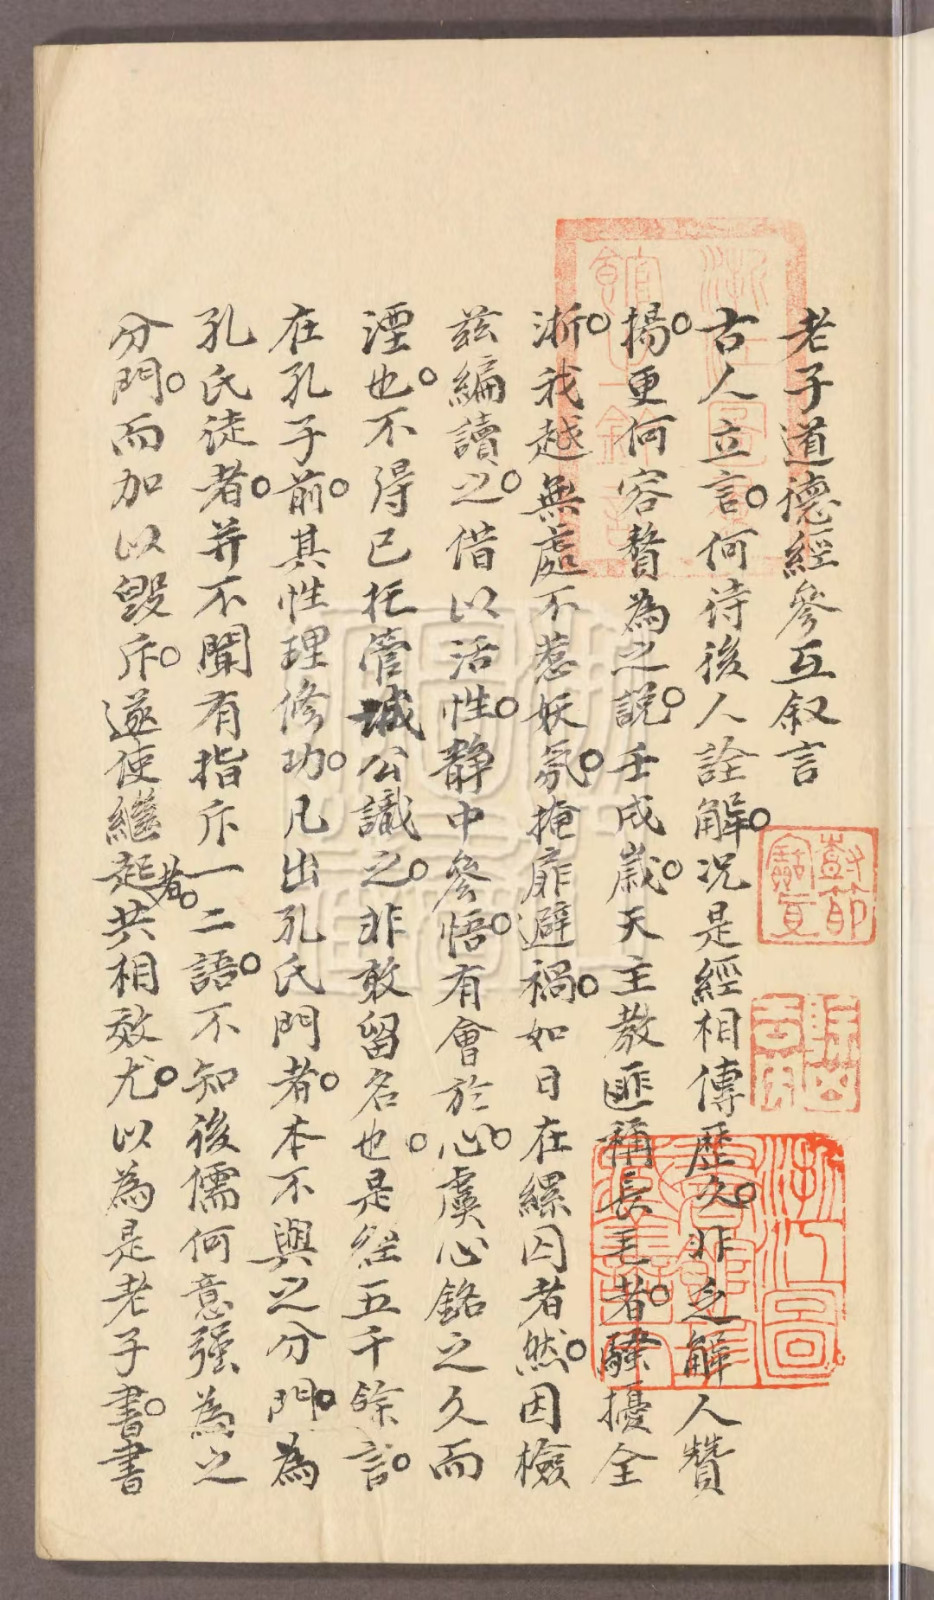 老子道德經參互叙言
古人立言。何待後人詮解。况是經相傳歷久。非乏解人贊
揚。更何容贅為之說。壬戌歲。天主教匪稱長毛者。騷擾全
浙。我越無處不惹妖氛。掩扉避禍。如日在縲囚者然。因檢
茲編讀之。借以活性。静中參悟。有會於心。虞心銘之久而
湮也。不得已托管城公識之。非敢留名也。是經五千餘言。
在孔子前。其性理修功。凡出孔氏門者。本不與之分門。為
孔氏徒者。并不聞有指斥一二語。不知後儒何意强為之
分門。而加以毁斥。遂使繼起者。共相效尤。以為是老子書。書
浙江圖